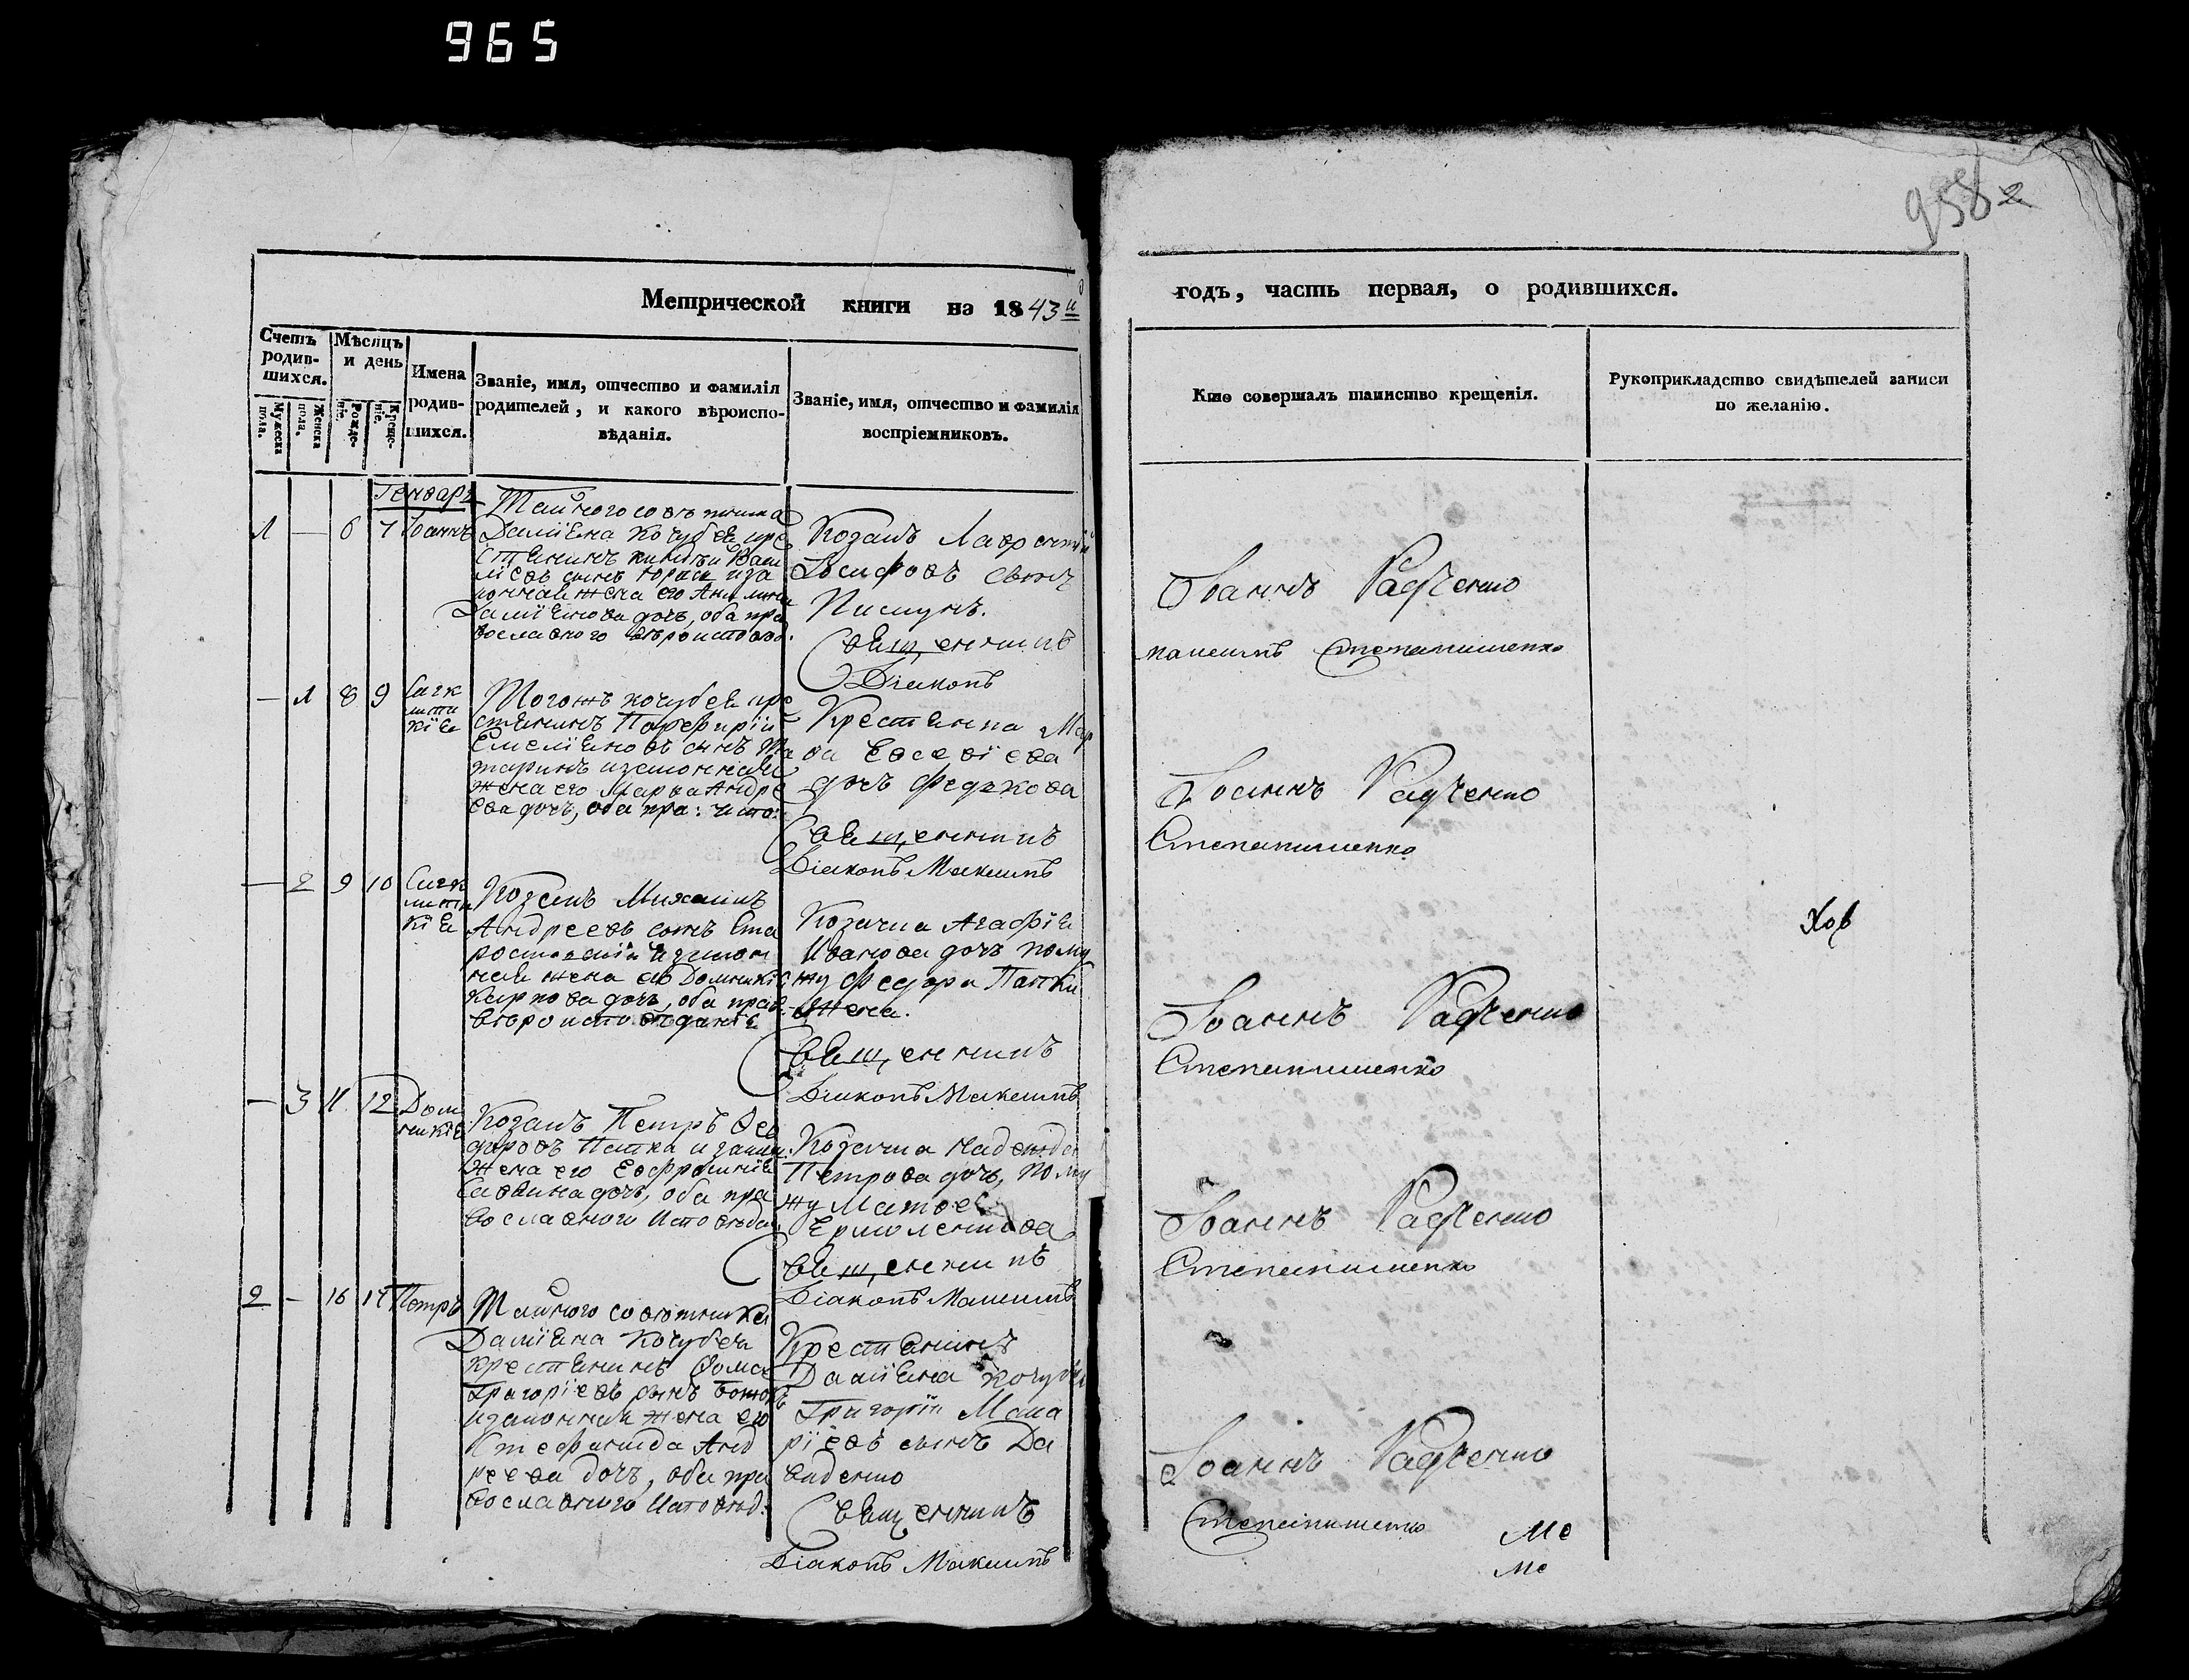 965
958 2
Метрической книги на 1843 й
годъ, часть первая, о родившихся.
Счетъ родившихся.
Мужеска пола.
Женска пола.
Мѣсяцъ и день
Рождения.
Крещеніе.
Имена родившихся.
Званіе, имя, отчество и фамилія
родителей, и какого вѣроиспо-
вѣданія.
Званіе, имя, отчество и фамилія
воспріемниковъ.
Кто совершалъ таинство крещенія.
Рукоприкладство свидѣтелей записи
по желанію.
Генварь
1 — 6 7 Іоаннъ
Тайного совѣтника
Даміяна Кочубея кре
стянинъ
сынъ
жена его
Даміянова дочъ, оба пра
вославного
Козакъ Лаврентій
Іосифовъ сынъ
Писцунъ.
Священникъ
Діаконъ
Іоаннъ Радченко
Максимъ Степанишенко
— 1 8 9
Тогожъ Кочубея кре
стянинъ Порфирій
Емеліяновъ сынъ
жена его Марѳа Андре
ева дочъ, оба пра:
Крестянка Мар
ѳа Евсевіева
дочъ Федькова
Священникъ
Діаконъ Максимъ
Іоаннъ Радченко
Степанишенко
— 2 9 10
Козакъ Михаилъ
Андреевъ сынъ
жена его Домникія
Карпова дочъ, оба прав:
Козачка Агафія
Иванова дочъ по му
жу Федора
жена.
Священникъ
Діаконъ Максимъ
Іоаннъ Радченко
Степанишенко
Хов
— 3 11 12 Дом
никія
Козакъ Петръ Ѳео
доровъ Патка и закон:
жена его Евфросинія
Саввина дочъ, оба пра
вославного исповѣда:
Козачка Надежда
Петрова дочъ, по му
жу Матѳе
Ермоленкова
Священникъ
Діаконъ Максимъ
Іоаннъ Радченко
Степанишенко
2 — 16 17 Петръ
Тайного совѣтника
Даміяна Кочубея
крестянинъ Ѳома
Григоріевъ сынъ
изаконная жена его
Стефанида Анд
реева дочъ, оба пра
вославного исповѣд:
Крестянинъ
Даміяна Кочубея
Григорій Мака
ріевъ сынъ Да
виденко
Священникъ
Діаконъ Максимъ
Іоаннъ Радченко
Степанишенко
Ме
Ме